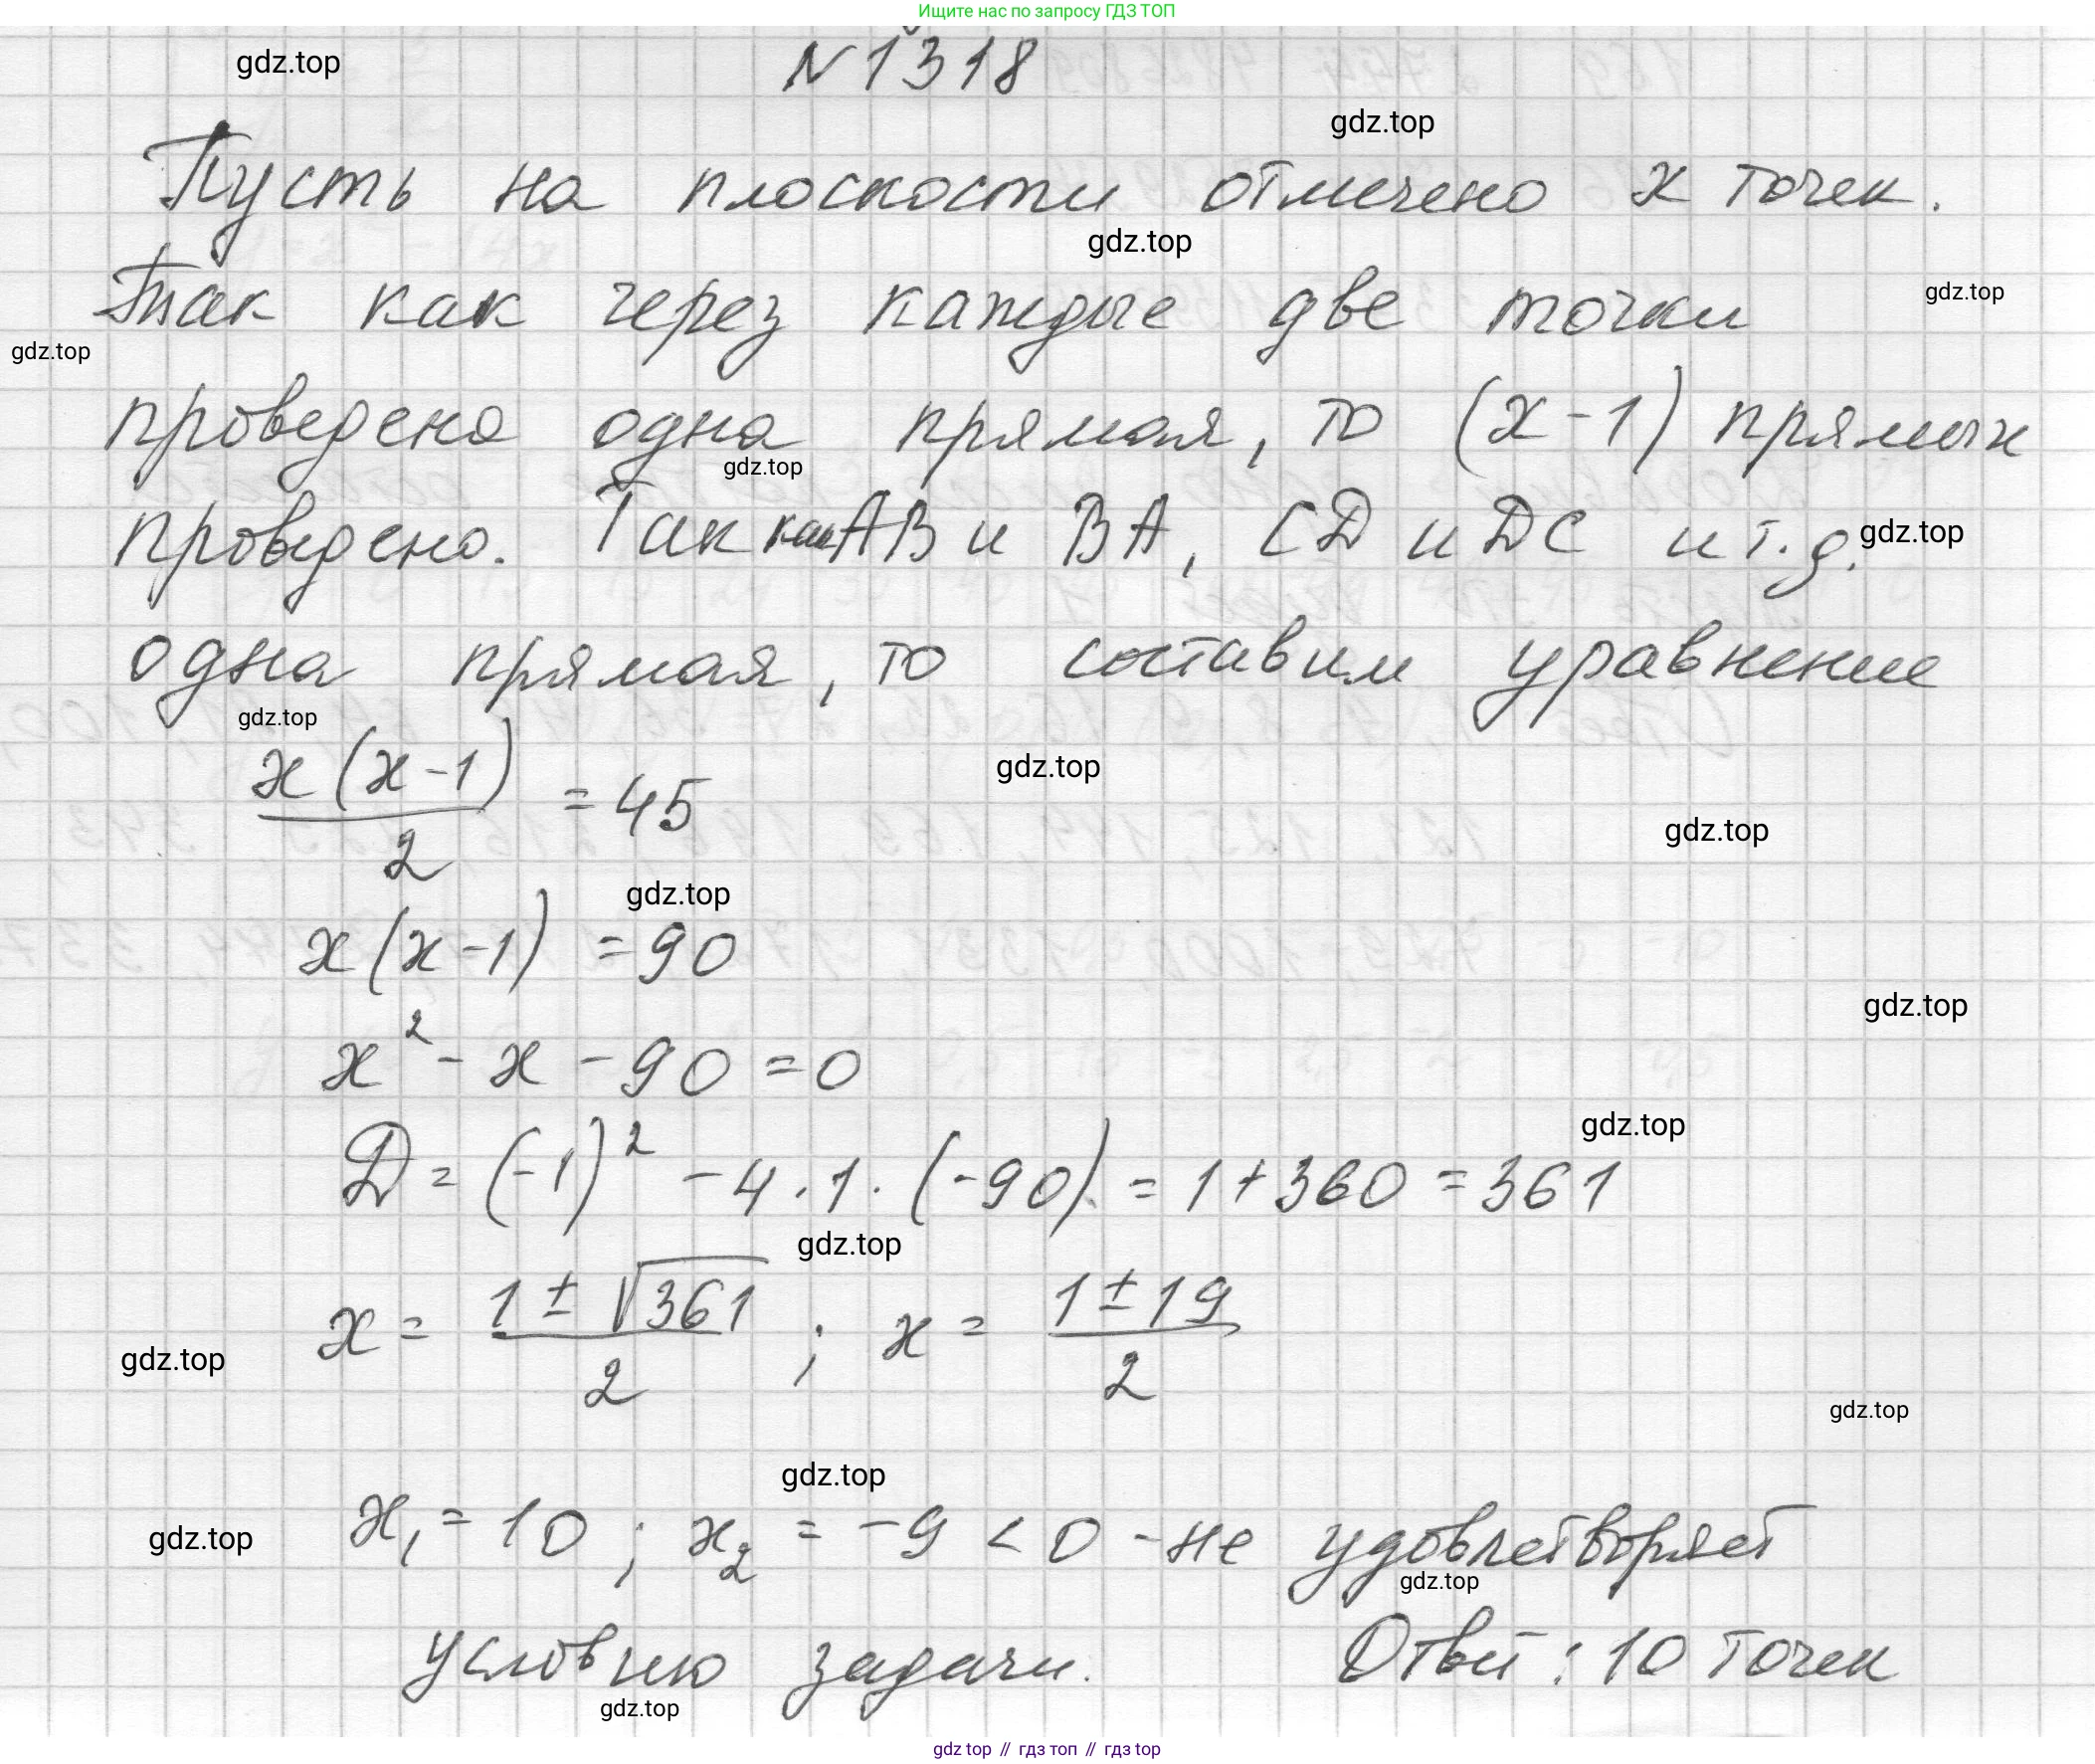 Ищите нас по запросу ГДЗ ТОП
gdz.top
N 1318
gdz.top
Пусть на плоскости отмечено x точек.
gdz.top
gdz.top
Так как через каждые две точки
gdz.top
проведена одна прямая, то (x-1) прямых
gdz.top
проведено. Так как AB и BA, CD и DC и т.д. gdz.top
одна прямая, то составим уравнение
gdz.top
x(x-1)/2 = 45
gdz.top
gdz.top
gdz.top
x(x-1) = 90
gdz.top
x² - x - 90 = 0
gdz.top
D = (-1)² - 4 · 1 · (-90) = 1 + 360 = 361
gdz.top
x = (1 ± √361)/2 ; x = (1 ± 19)/2
gdz.top
gdz.top
gdz.top
gdz.top
x₁ = 10 ; x₂ = -9 < 0 - не удовлетворяет
gdz.top
условию задачи. Ответ: 10 точек
gdz.top
gdz top // гдз топ // гдз top